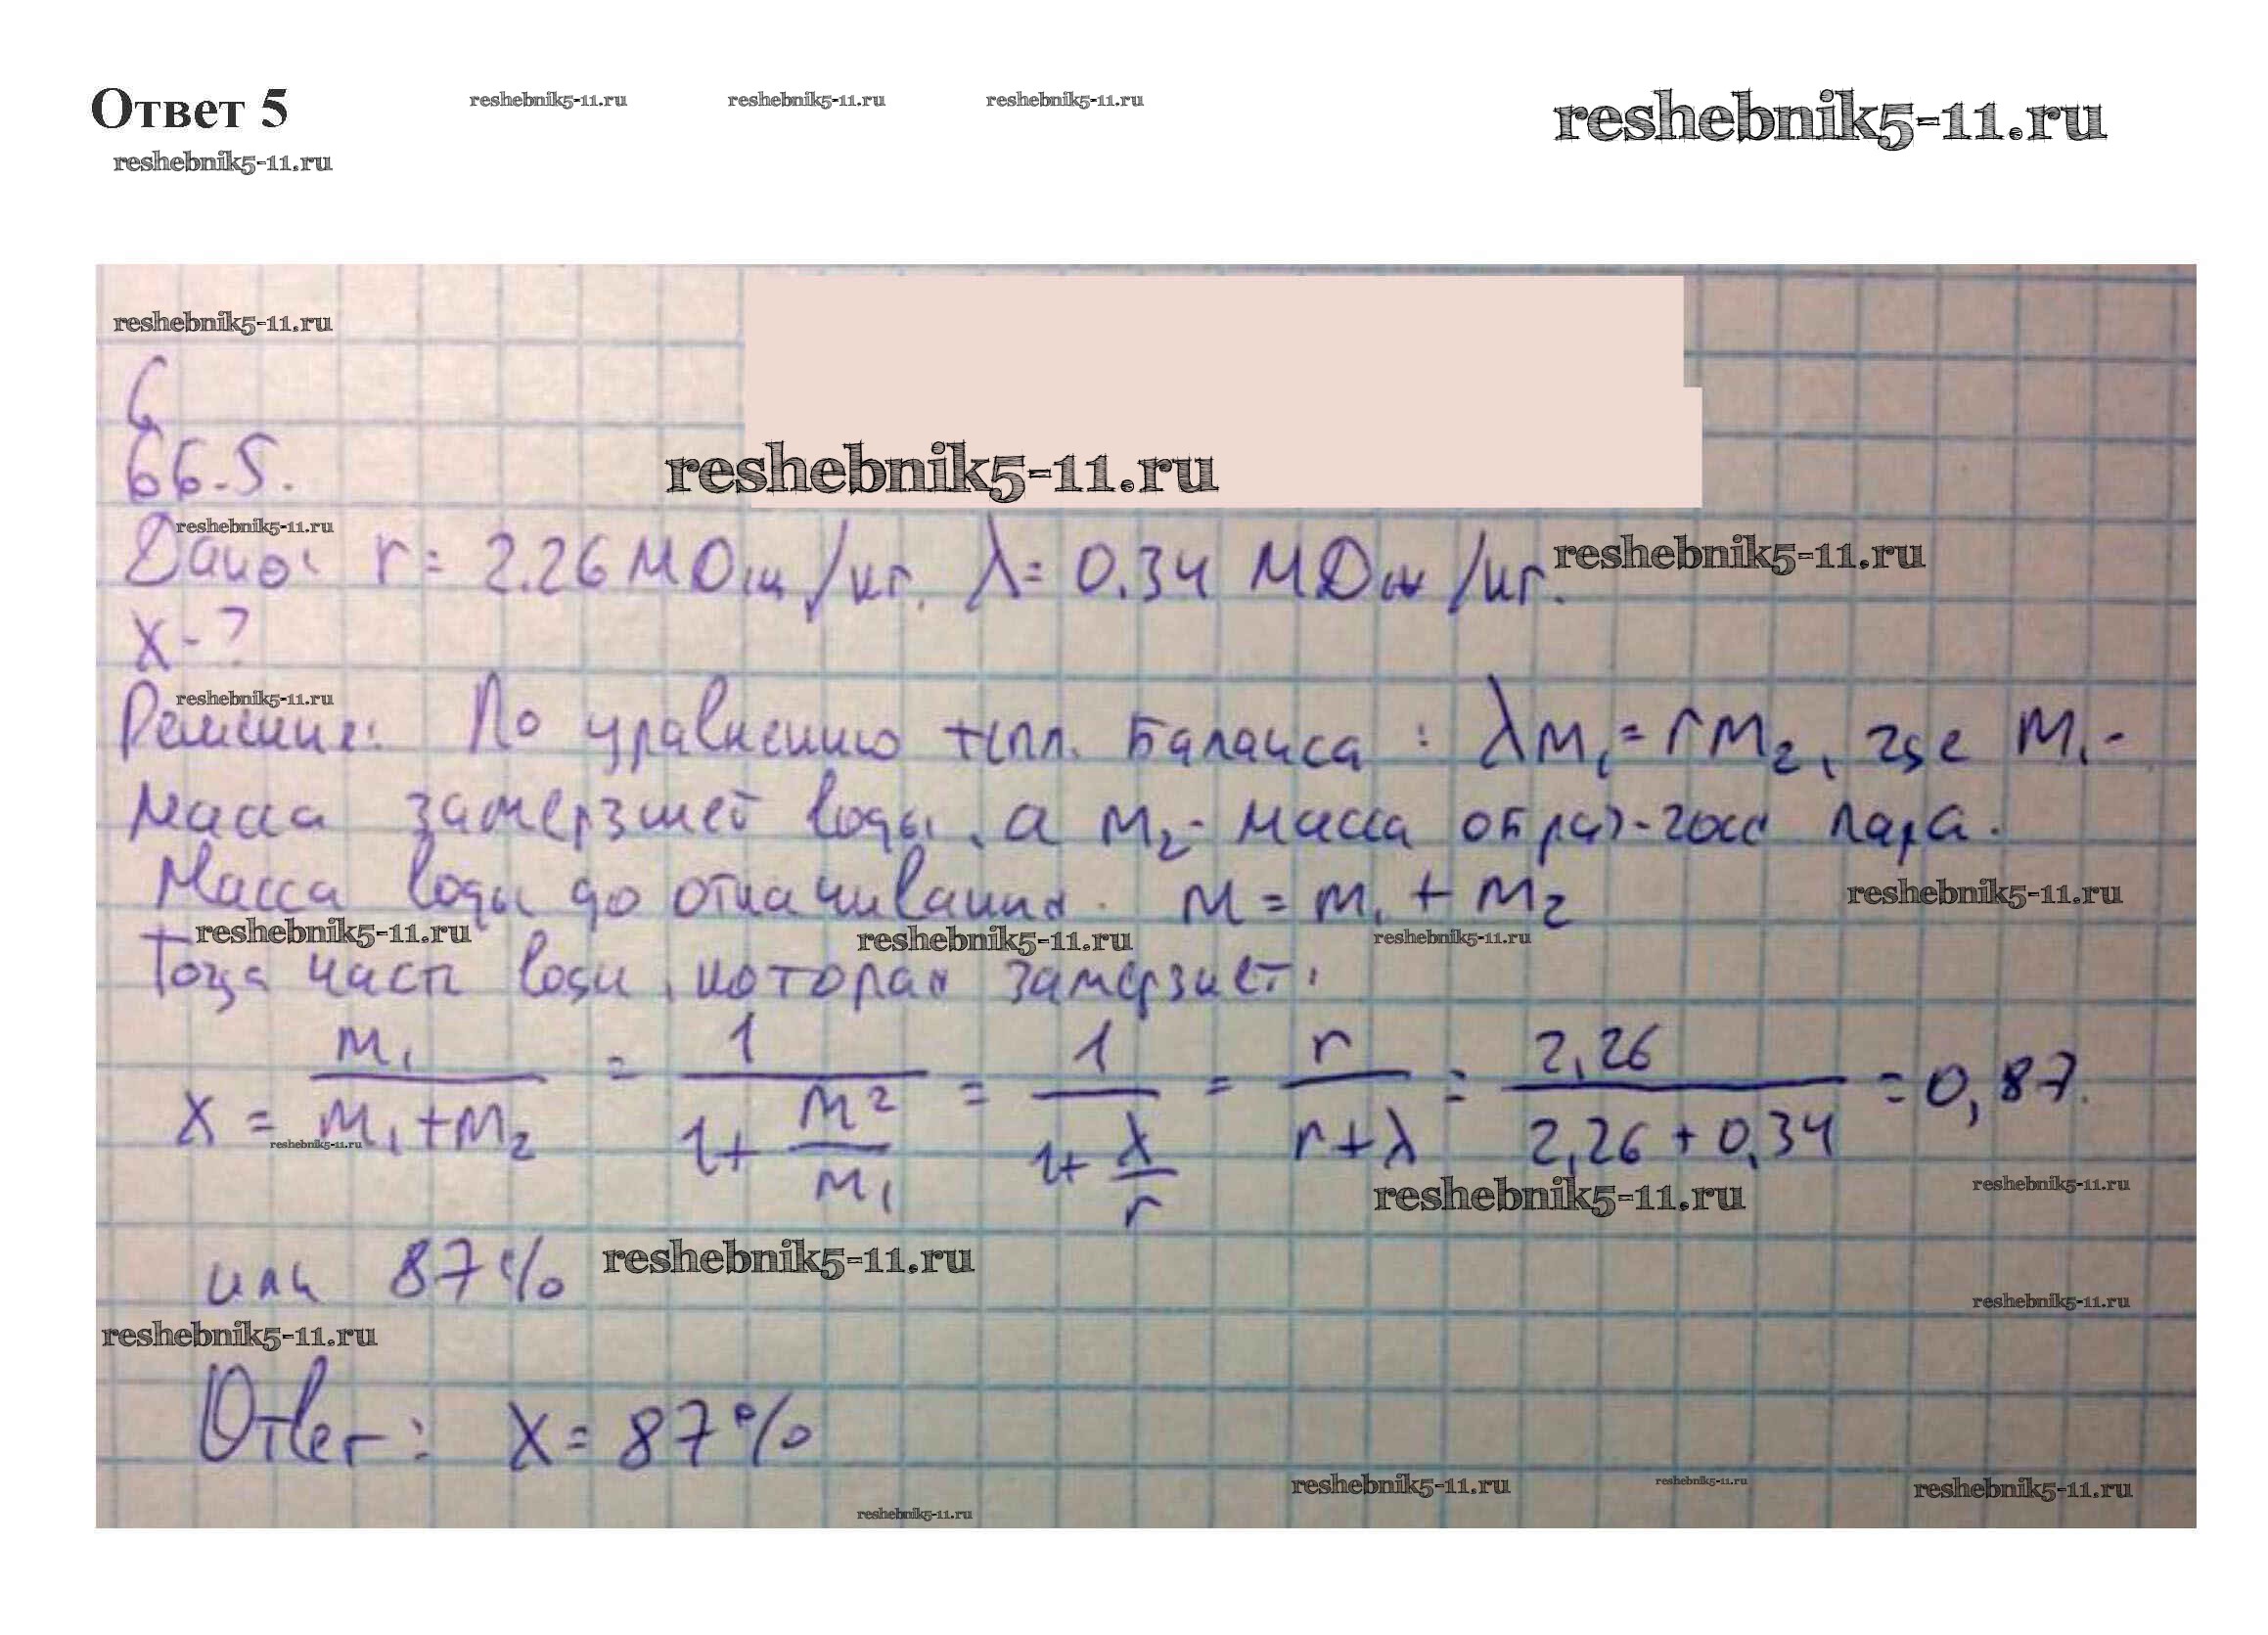 Ответ 5 reshebnik5-11.ru reshebnik5-11.ru reshebnik5-11.ru reshebnik5-11.ru
reshebnik5-11.ru
reshebnik5-11.ru
6
66.5.
reshebnik5-11.ru
reshebnik5-11.ru
Дано: r = 2.26 МДж/кг. λ = 0.34 МДж/кг. reshebnik5-11.ru
x - ?
reshebnik5-11.ru
Решение: По уравнению тепл. баланса: λm₁ = rm₂, где m₁ -
масса замерзшей воды, а m₂ - масса образ-гося пара.
Масса воды до откачивания. m = m₁ + m₂ reshebnik5-11.ru
reshebnik5-11.ru reshebnik5-11.ru reshebnik5-11.ru
Тогда часть воды, которая замерзнет:
x = m₁/(m₁+m₂) = 1/(1+m₂/m₁) = 1/(1+λ/r) = r/(r+λ) = 2,26/(2,26+0,34) = 0,87.
reshebnik5-11.ru
reshebnik5-11.ru reshebnik5-11.ru
или 87% reshebnik5-11.ru
reshebnik5-11.ru
reshebnik5-11.ru
Ответ: x = 87%
reshebnik5-11.ru reshebnik5-11.ru reshebnik5-11.ru
reshebnik5-11.ru